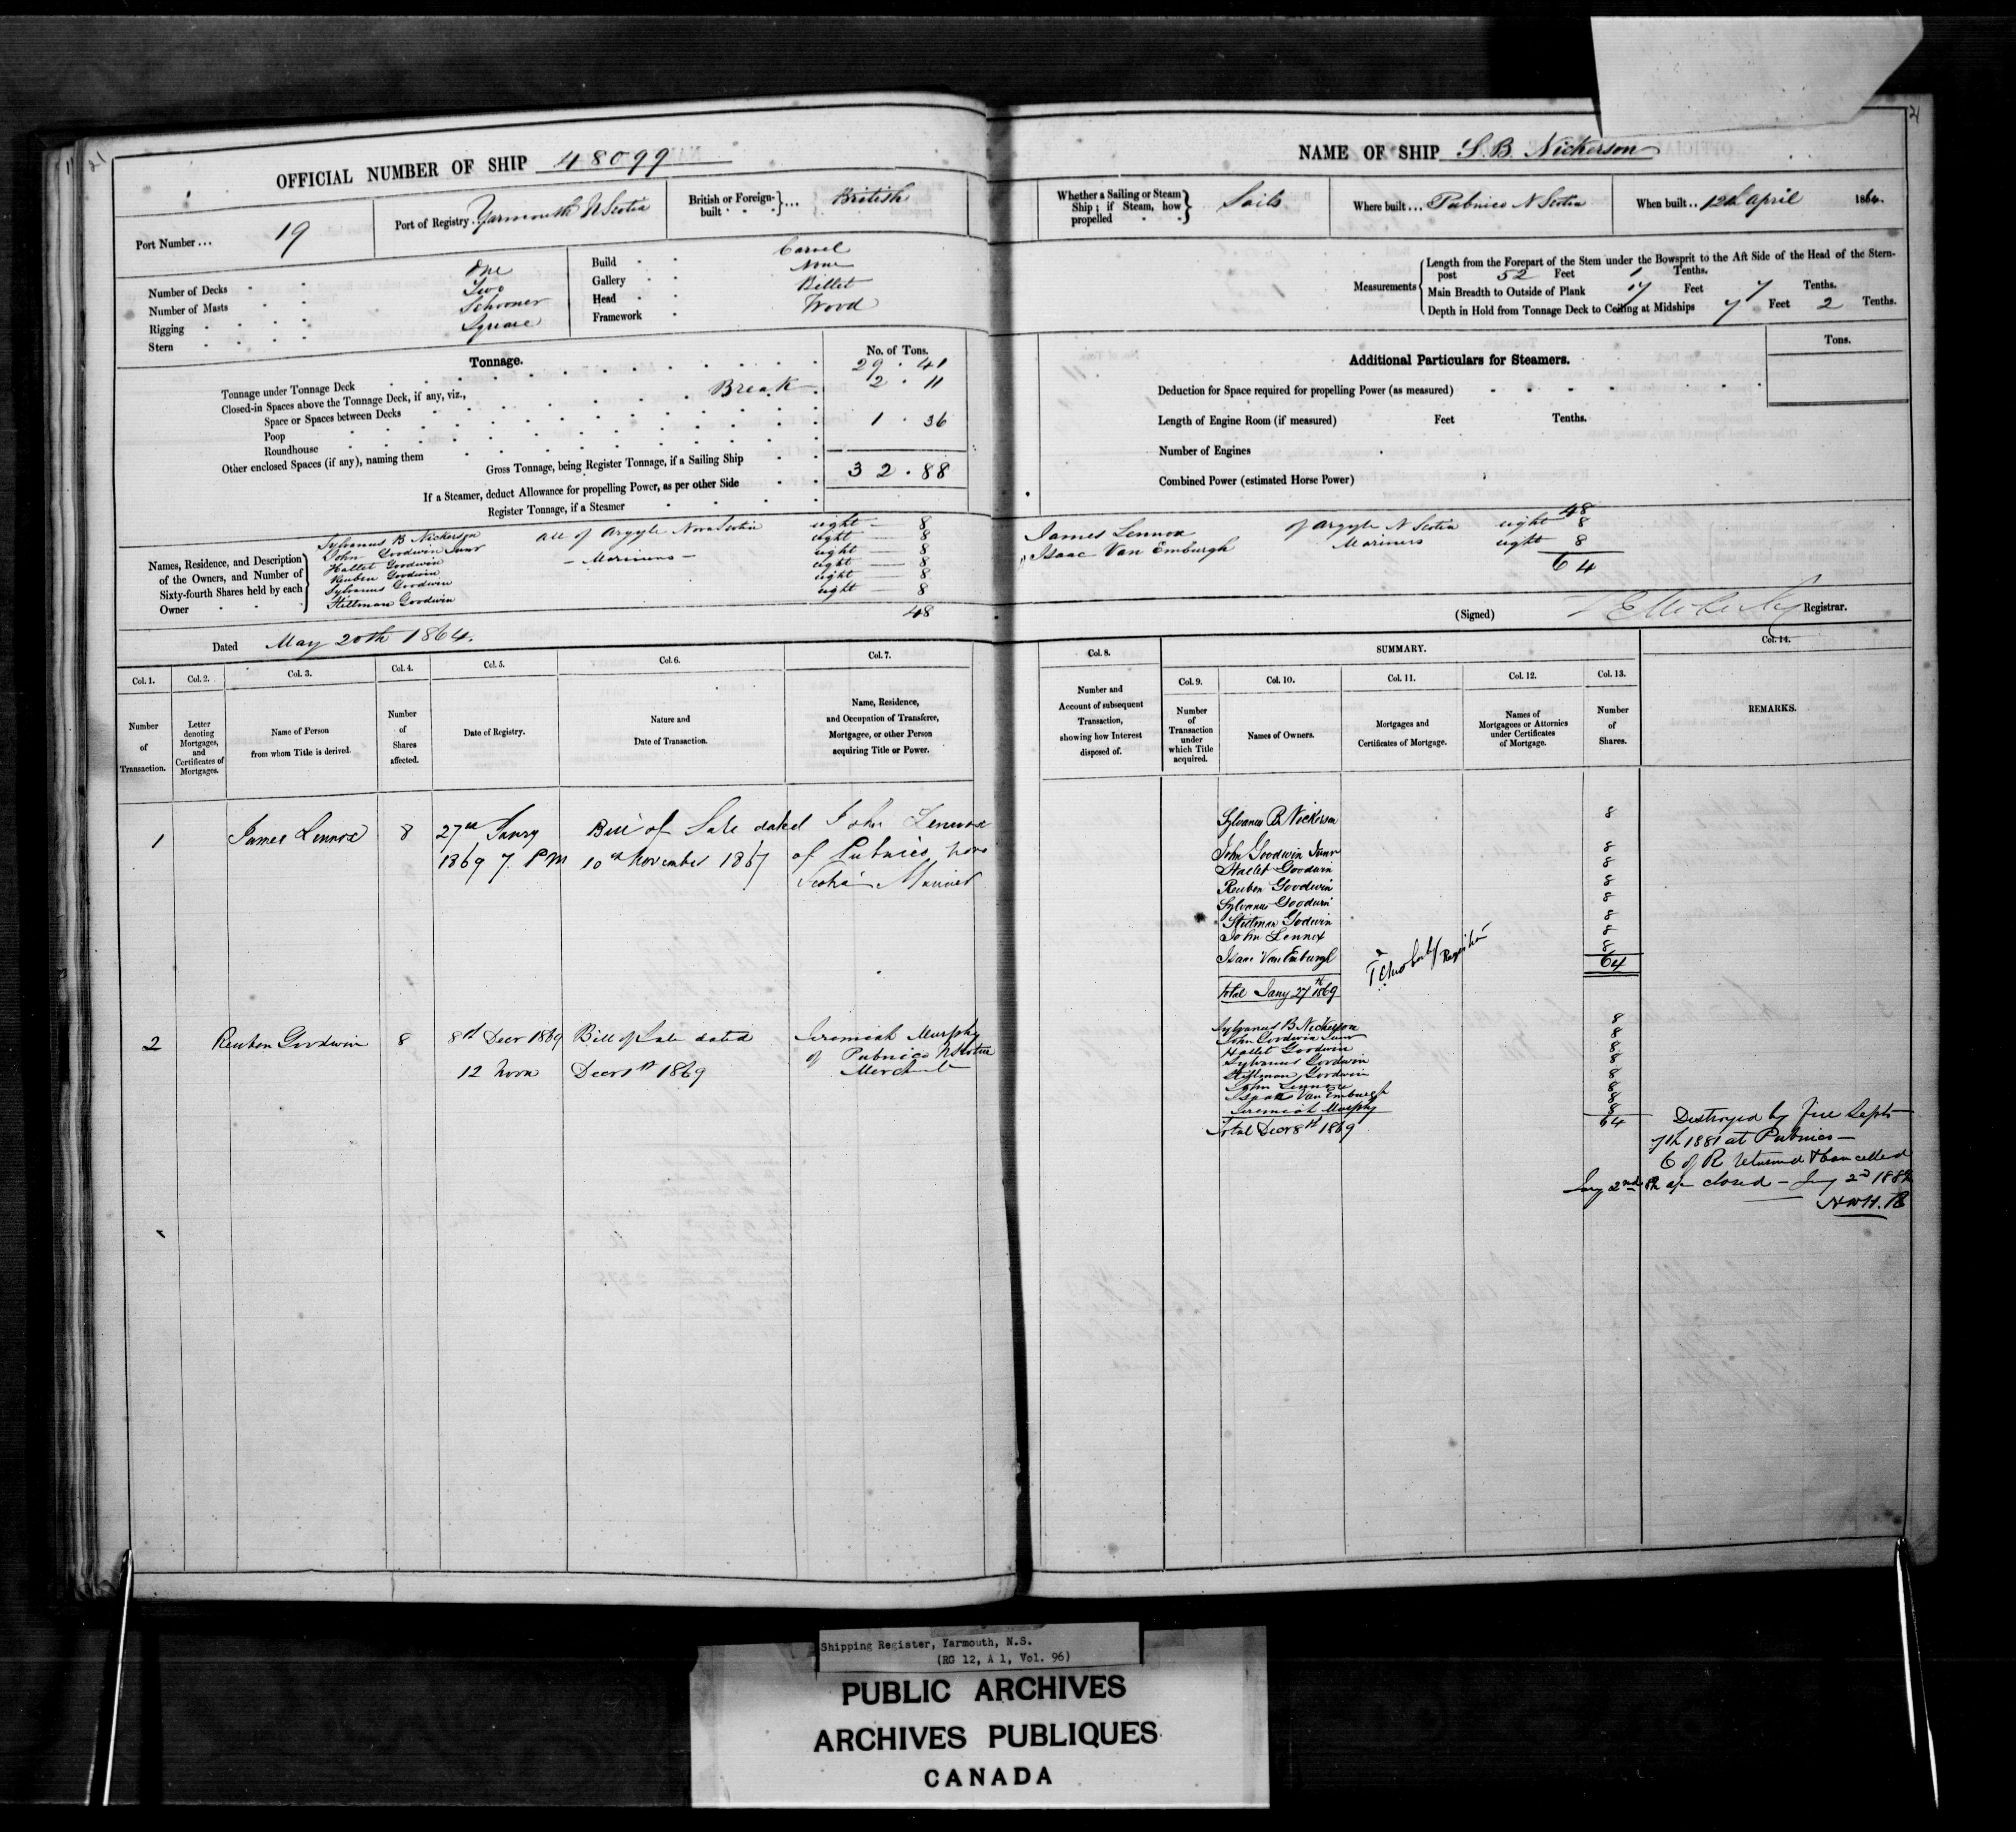 21
OFFICIAL NUMBER OF SHIP 48099
Port Number... 19
Port of Registry. Yarmouth N Scotia
British or Foreign-built ... British
Number of Decks One
Number of Masts Two
Rigging Schooner
Stern Square
Build Carvel
Gallery None
Head Billet
Framework Wood
Tonnage.
No. of Tons.
Tonnage under Tonnage Deck 29.41
Closed-in Spaces above the Tonnage Deck, if any, viz., Break 2.11
Space or Spaces between Decks
Poop 1.36
Roundhouse
Other enclosed Spaces (if any), naming them
Gross Tonnage, being Register Tonnage, if a Sailing Ship 32.88
If a Steamer, deduct Allowance for propelling Power, as per other Side
Register Tonnage, if a Steamer
Names, Residence, and Description of the Owners, and Number of Sixty-fourth Shares held by each Owner
Sylvanus B Nickerson All of Argyle Nova Scotia eight — 8
John Goodwin Junr eight — 8
Hallet Goodwin — Mariners — eight — 8
Reuben Goodwin eight — 8
Sylvanus Goodwin eight — 8
Stillman Goodwin eight — 8
48
Dated May 20th 1864.
Col. 1. Col. 2. Col. 3. Col. 4. Col. 5. Col. 6. Col. 7.
Number of Transaction.
Letter denoting Mortgages, and Certificates of Mortgages.
Name of Person from whom Title is derived.
Number of Shares affected.
Date of Registry.
Nature and Date of Transaction.
Name, Residence, and Occupation of Transferee, Mortgagee, or other Person acquiring Title or Power.
1 James Lennox 8 27th Janry Bill of Sale dated John Lennox
1869 7. PM 10th November 1867 of Pubnico Nova
Scotia Mariner
2 Reuben Goodwin 8 8th Decr 1869 Bill of Sale dated Jeremiah Murphy
12 Noon Decr 1st 1869 of Pubnico N Scotia
Merchant
21
NAME OF SHIP S. B. Nickerson
Whether a Sailing or Steam Ship; if Steam, how propelled Sails
Where built... Pubnico N Scotia
When built.. 12th April 1864.
Measurements
Length from the Forepart of the Stem under the Bowsprit to the Aft Side of the Head of the Stern-
post 52 Feet 1 Tenths.
Main Breadth to Outside of Plank 17 Feet 7 Tenths.
Depth in Hold from Tonnage Deck to Ceiling at Midships 7 Feet 2 Tenths.
Additional Particulars for Steamers.
Tons.
Deduction for Space required for propelling Power (as measured)
Length of Engine Room (if measured) Feet Tenths.
Number of Engines
Combined Power (estimated Horse Power)
48
James Lennox of Argyle N Scotia eight 8
Isaac Van Emburgh Mariners eight 8
64
(Signed) Registrar.
Col. 8. SUMMARY. Col. 14.
Col. 9. Col. 10. Col. 11. Col. 12. Col. 13.
Number and Account of subsequent Transaction, showing how Interest disposed of.
Number of Transaction under which Title acquired.
Names of Owners.
Mortgages and Certificates of Mortgage.
Names of Mortgagees or Attornies under Certificates of Mortgage.
Number of Shares.
REMARKS.
Sylvanus B Nickerson 8
John Goodwin Junr 8
Hallet Goodwin 8
Reuben Goodwin 8
Sylvanus Goodwin 8
Stillman Godwin 8
John Lennox 8
Isaac Van Emburgh 8
64
Total Jany 27th 1869
Registrar
Sylvanus B Nickerson 8
John Goodwin Junr 8
Hallet Goodwin 8
Sylvanus Goodwin 8
Stillman Goodwin 8
John Lennox 8
Isaac Van Emburgh 8
Jeremiah Murphy 8
Total Decr 8th 1869 64
Destroyed by Fire Sept
7th 1881 at Pubnico —
C of R returned & Cancelled
closed — Jany 2nd 1882
Shipping Register, Yarmouth, N.S.
(RG 12, A 1, Vol. 96)
PUBLIC ARCHIVES
ARCHIVES PUBLIQUES
CANADA